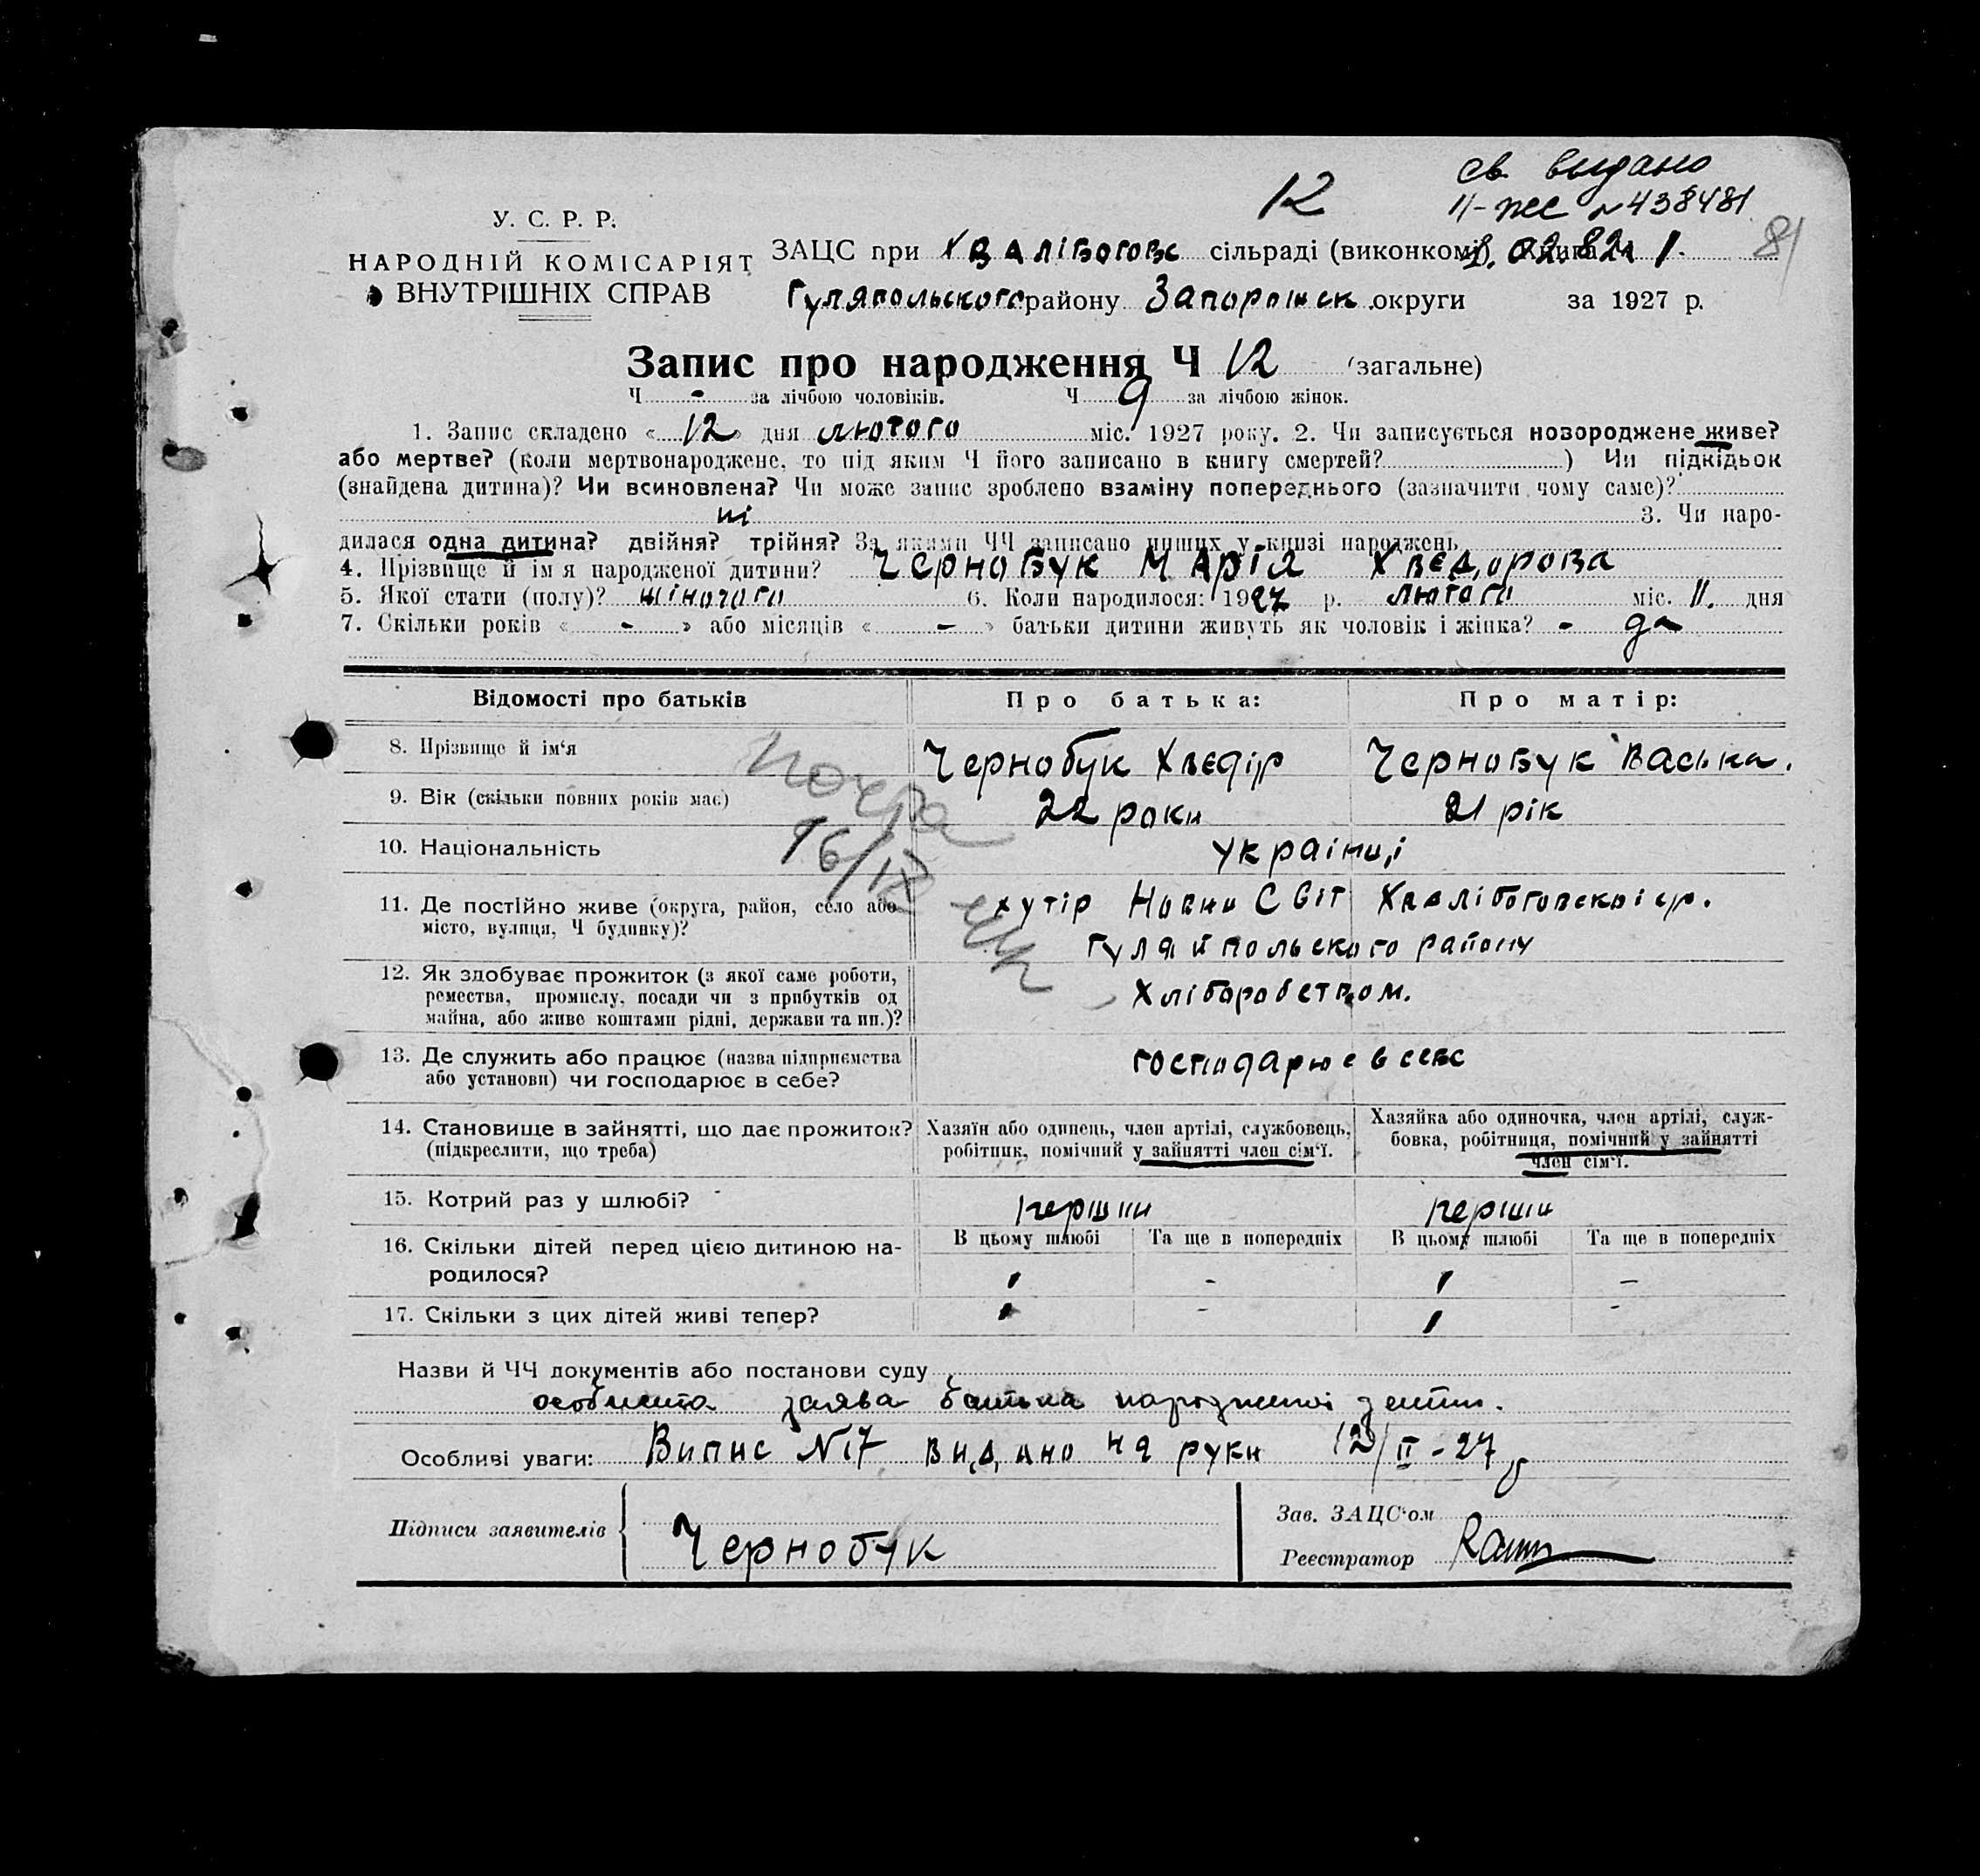 12
св. выдано
II-ЖС № 438481
81
У. С. Р. Р.
НАРОДНІЙ КОМІСАРІЯТ
ВНУТРІШНІХ СПРАВ
ЗАЦС при Хвалібоговс сільраді (виконкомі) Книга 1.
Гуляпольского району Запорожск округи за 1927 р.
Запис про народження Ч 12 (загальне)
Ч - за лічбою чоловіків. Ч 9 за лічбою жінок.
1. Запис складено «12» дня лютого міс. 1927 року. 2. Чи записується новороджене живе?
або мертве? (коли мертвонароджене, то під яким Ч його записано в книгу смертей? ) Чи підкідьок
(знайдена дитина)? Чи всиновлена? Чи може запис зроблено взаміну попереднього (зазначити чому саме)?
ні 3. Чи наро-
дилася одна дитина? двійня? трійня? За якими ЧЧ записано инших у книзі народжень
4. Прізвище й ім я народженої дитини? Чернобук Марія Хведорова
5. Якої стати (полу)? жіночого 6. Коли народилося: 1927 р. лютого міс. 11. дня
7. Скільки років « - » або місяців « - » батьки дитини живуть як чоловік і жінка? - да
Відомості про батьків Про батька: Про матір:
8. Прізвище й ім'я Чернобук Хведір Чернобук Васька.
9. Вік (скільки повних років має) 22 роки 21 рік
почта
16/IX
10. Національність українці
11. Де постійно живе (округа, район, село або хутір Новии Світ Хвалібоговскоі ср.
місто, вулиця, Ч будинку)? Гуляйпольского району
12. Як здобуває прожиток (з якої саме роботи,
ремества, промислу, посади чи з прибутків од Хліборобством.
майна, або живе коштами рідні, держави та ин.)?
13. Де служить або працює (назва підприємства господарює в себе
або установи) чи господарює в себе?
14. Становище в зайнятті, що дає прожиток? Хазяїн або одинець, член артілі, службовець, Хазяйка або одиночка, член артілі, служ-
(підкреслити, що треба) робітник, помічний у зайнятті член сім'ї. бовка, робітниця, помічний у зайнятті
член сім'ї.
15. Котрий раз у шлюбі? першии перши
16. Скільки дітей перед цією дитиною на- В цьому шлюбі Та ще в попередніх В цьому шлюбі Та ще в попередніх
родилося? 1 - 1 -
17. Скільки з цих дітей живі тепер? 1 - 1 -
Назви й ЧЧ документів або постанови суду
особиста заява батька народженоі дитини.
Особливі уваги: Випис №17 видано на руки 12/II - 27
Підписи заявителів Чернобук
Зав. ЗАЦС'ом
Реєстратор